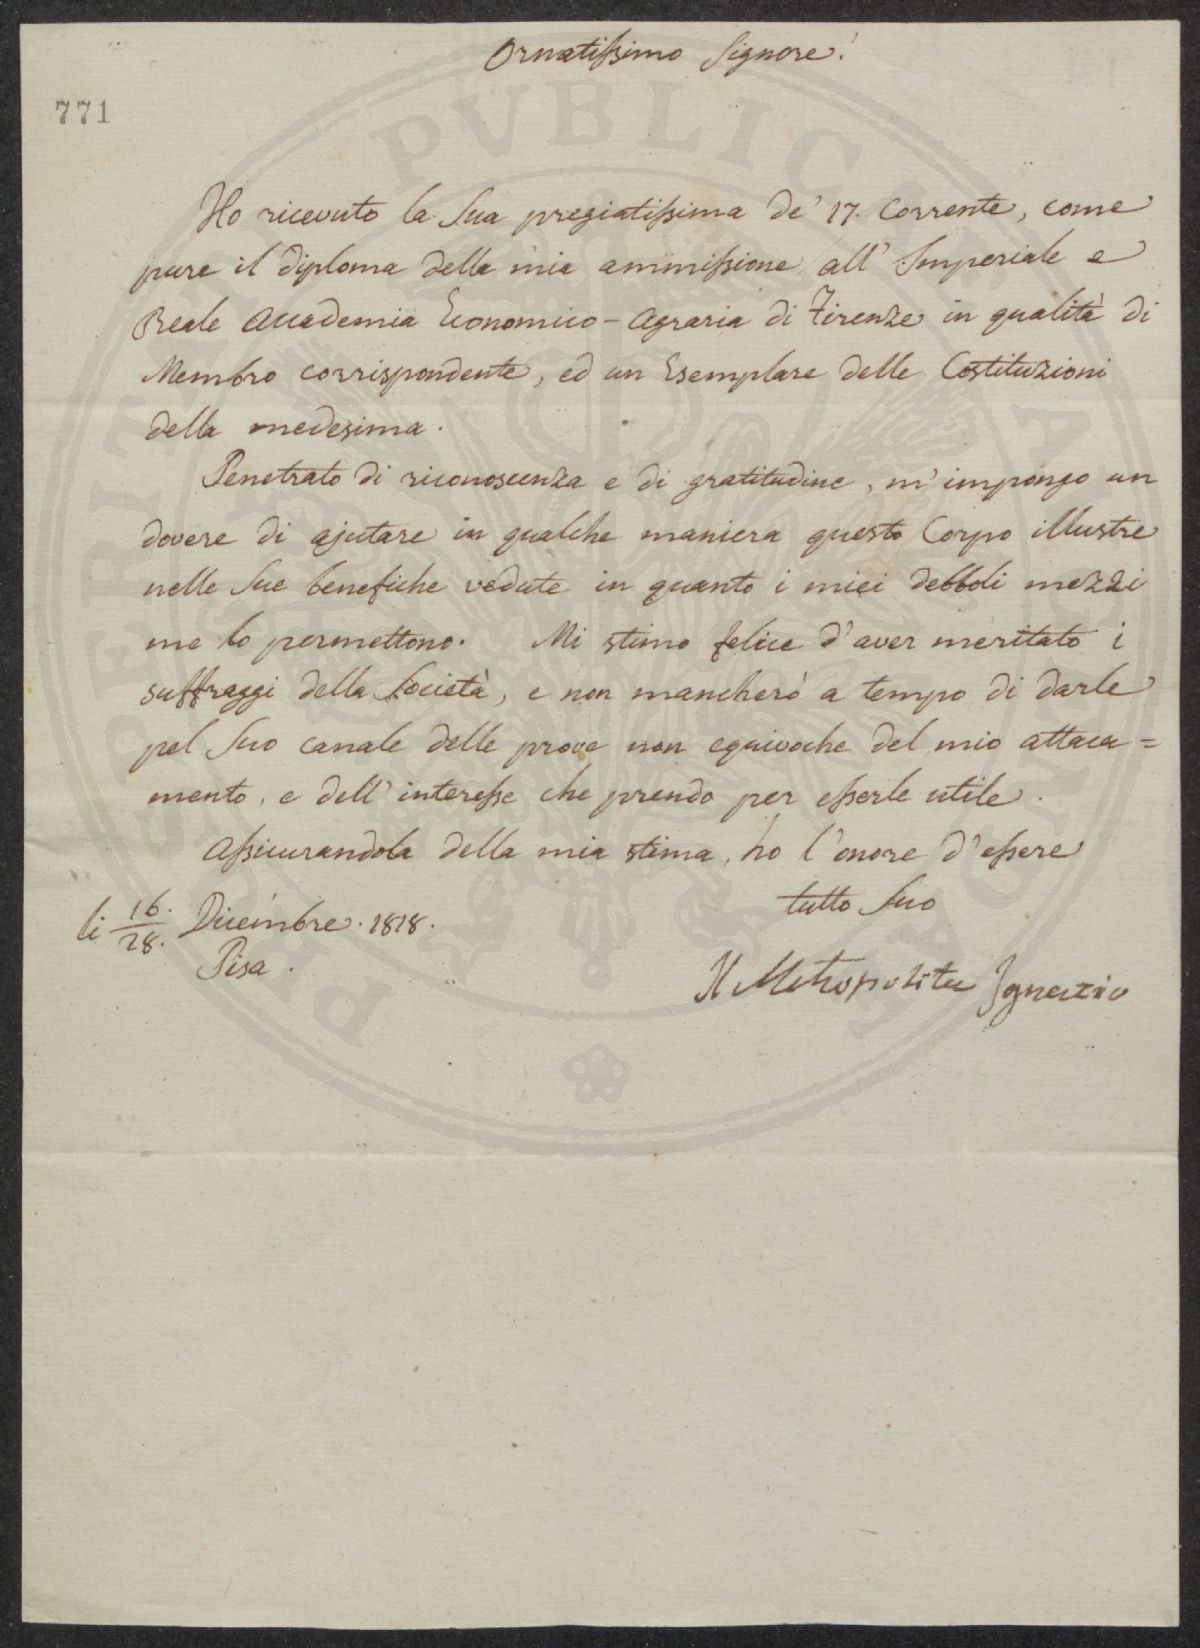 Ornatissimo Signore!
771
Ho ricevuto la Sua pregiatissima de' 17. Corrente, come
pure il diploma della mia ammissione all' Imperiale e
Reale Accademia Economico-Agraria di Firenze in qualità di
Membro corrispondente, ed un Esemplare delle Costituzioni
della medesima.
Penetrato di riconoscenza e di gratitudine, m'impongo un
dovere di ajutare in qualche maniera questo Corpo illustre
nelle Sue benefiche vedute in quanto i miei debboli mezzi
me lo permettono. Mi stimo felice d'aver meritato i
suffraggi della Società, e non mancherò a tempo di darle
pel Suo canale delle prove non equivoche del mio attacca=
mento, e dell'interesse che prendo per esserle utile.
Assicurandola della mia stima, ho l'onore d'essere
tutto Suo
li 16./28. Dicembre. 1818.
Pisa.
Il Metropolita Ignazio